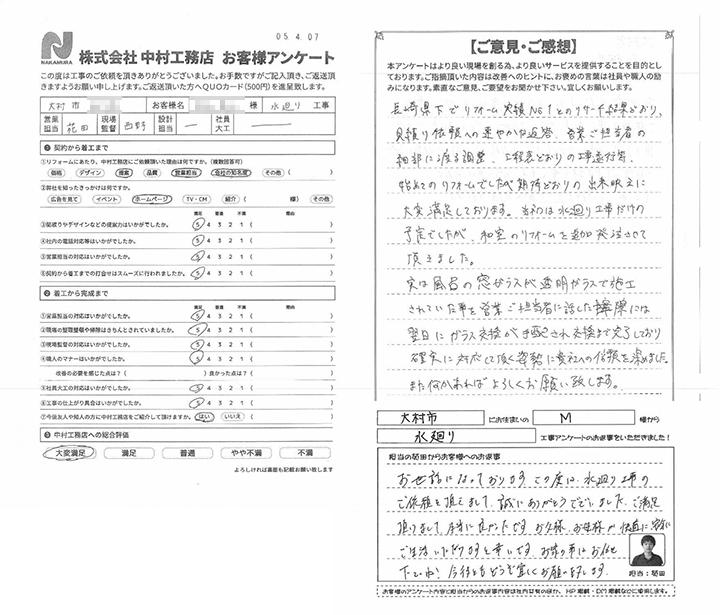 05.4.07
NAKAMURA
株式会社 中村工務店 お客様アンケート
この度は工事のご依頼を頂きありがとうございました。お手数ですがご記入頂き、ご返送頂
きますようお願い申し上げます。ご返送頂いた方へQUOカード(500円)を進呈致します。
大村 市 お客様名 様 水廻り 工事
営業担当 花田 現場監督 西野 設計担当 ー 社員大工 ー
❶ 契約から着工まで
①リフォームにあたり、中村工務店にご依頼頂いた理由は何ですか。(複数回答可)
価格 デザイン 提案 品質 営業担当 会社の知名度 その他
②弊社を知ったきっかけは何ですか。
広告を見て イベント ホームページ TV・CM 紹介 ( 様) その他
満足 普通 不満 理由
③間取りやデザインなどの提案力はいかがでしたか。 5 4 3 2 1 ( )
④社内の電話対応等はいかがでしたか。 5 4 3 2 1 ( )
⑤営業担当の対応はいかがでしたか。 5 4 3 2 1 ( )
⑥契約から着工までの打合せはスムーズに行われましたか。 5 4 3 2 1 ( )
❷ 着工から完成まで
満足 普通 不満 理由
①営業担当の対応はいかがでしたか。 5 4 3 2 1 ( )
②現場の整理整頓や掃除はきちんとされていましたか。 5 4 3 2 1 ( )
③現場監督の対応はいかがでしたか。 5 4 3 2 1 ( )
④職人のマナーはいかがでしたか。 5 4 3 2 1 ( )
改善の必要を感じた点は?( )良かった点は?( )
⑤社員大工の対応はいかがでしたか。 5 4 3 2 1 ( )
⑥工事の仕上がり具合はいかがでしたか。 5 4 3 2 1 ( )
⑦今後友人や知人の方に中村工務店をご紹介して頂けますか。 はい いいえ ( )
❸ 中村工務店への総合評価
大変満足 満足 普通 やや不満 不満
よろしければ裏面も記載お願い致します
【ご意見・ご感想】
本アンケートはより良い現場を創る為、より良いサービスを提供することを目的とし
ております。ご指摘頂いた内容は改善へのヒントに、お褒めの言葉は社員や職人の励
みになります。素直なご意見、ご要望をお聞かせ下さい。宜しくお願いします。
長崎県下でリフォーム実績No1とのリサーチ結果どおり、
見積り依頼への速やかな返答、営業ご担当者の
細部に渡る調整、工程表どおりの工事進行等、
始めてのリフォームでしたが期待どおりの出来映えに
大変満足しております。当初は水廻り工事だけの
予定でしたが、和室のリフォームを追加発注させて
頂きました。
実は風呂の窓ガラスが透明ガラスで施工
されていた事を営業ご担当者に話した際には
翌日にガラス交換が手配され交換まで完了しており
確実に対応して頂く姿勢に貴社への信頼を深めました。
また何かあればよろしくお願い致します。
大村市 にお住まいの M 様から
水廻り 工事アンケートのお返事をいただきました!
担当の花田からお客様へのお返事
お世話になっております。この度は、水廻り工事の
ご依頼を頂きまして、誠にありがとうございました。ご満足
頂けまして、本当に良かったです。お父様、お母様が快適に安全に
ご生活いただけますと幸いです。お家の事はお任せ
下さいね!今後ともどうぞ宜しくお願い致します。
担当:花田
お客様のアンケート内容に担当からのお返事内容は社内は もとより、HP掲載・DM掲載などに使用します。